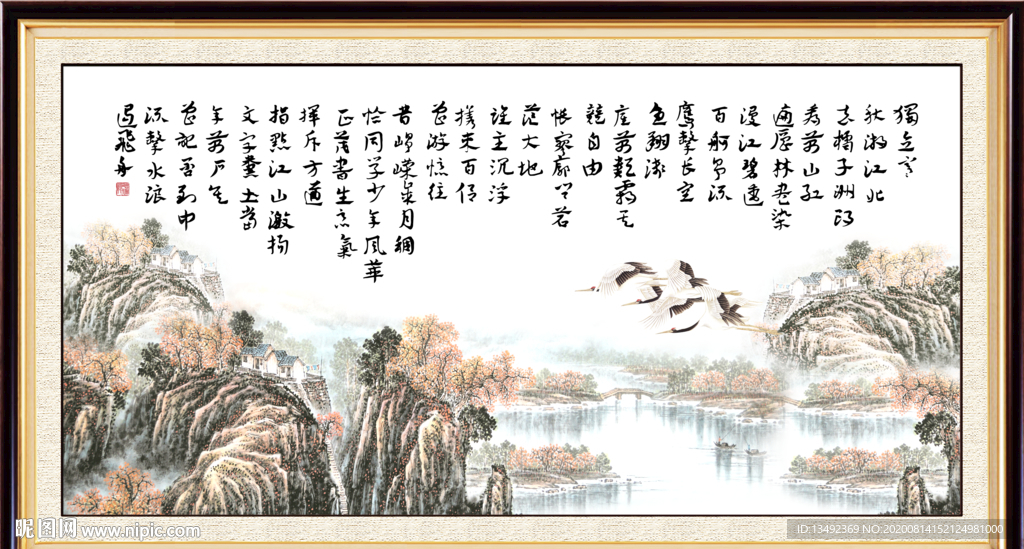 獨立寒
秋湘江北
去橘子洲頭
看萬山紅
遍層林盡染
漫江碧透
百舸爭流
鷹擊長空
魚翔淺
底萬類霜天
競自由
悵寥廓問蒼
茫大地
誰主沉浮
攜來百侶
曾游憶往
昔崢嶸歲月稠
恰同學少年風華
正茂書生意氣
揮斥方遒
指點江山激揚
文字糞土當
年萬戶侯
曾記否到中
流擊水浪
遏飛舟
昵图网 www.nipic.com
ID:13492369 NO:20200814152124981000